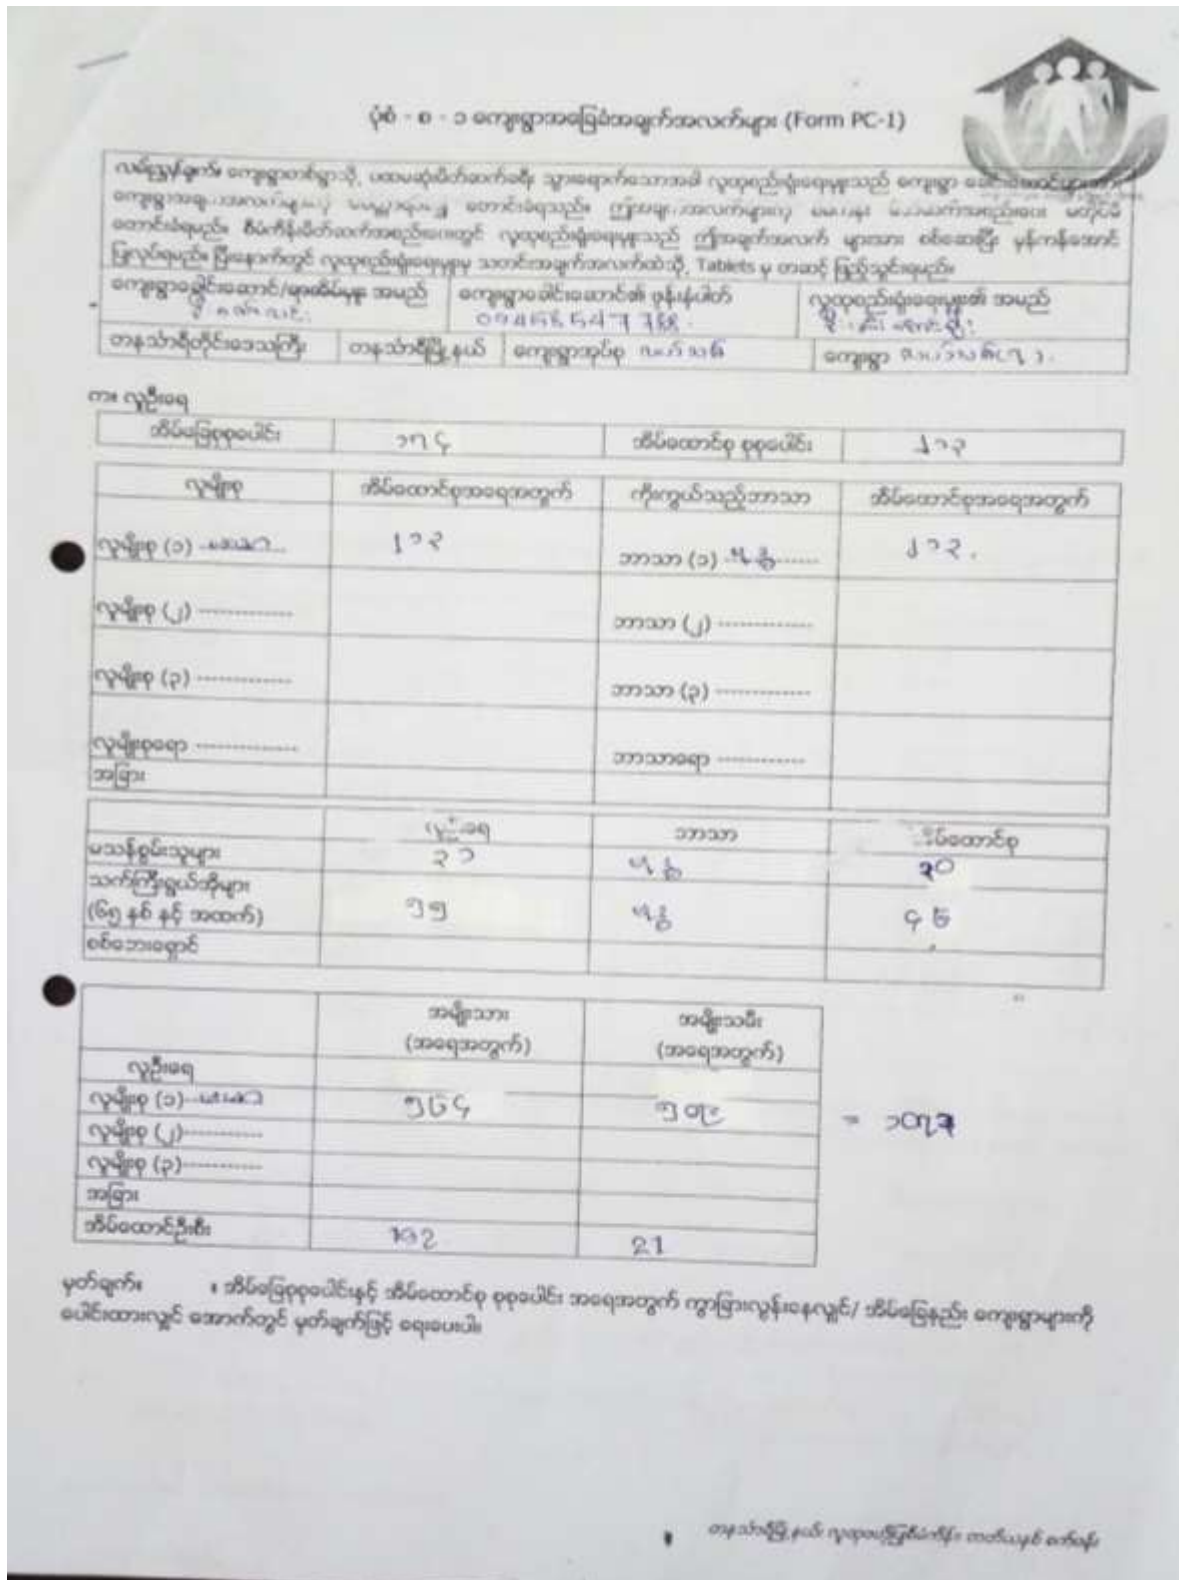 ပုံစံ - စ - ၁ ကျေးရွာအခြေခံအချက်အလက်များ (Form PC-1)
လမ်းညွှန်ချက်။ ကျေးရွာတစ်ရွာသို့ ပထမဆုံးမိတ်ဆက်ခရီး သွားရောက်သောအခါ လူထုစည်းရုံးရေးမှူးသည် ကျေးရွာ
တောင်းခံရမည်။ စီမံကိန်းမိတ်ဆက်အစည်းဝေးတွင် လူထုစည်းရုံးရေးမှူးသည် ဤအချက်အလက် များအား စစ်ဆေးပြီး မှန်ကန်အောင်
ပြုလုပ်ရမည်။ ပြီးနောက်တွင် လူထုစည်းရုံးရေးမှူးမှ သတင်းအချက်အလက်ထဲသို့ Tablets မှ တဆင့် ဖြည့်သွင်းရမည်။
ကျေးရွာခေါင်းဆောင်/ရာအိမ်မှူး အမည် ကျေးရွာခေါင်းဆောင်၏ ဖုန်းနံပါတ် လူထုစည်းရုံးရေးမှူး၏ အမည်
တနင်္သာရီတိုင်းဒေသကြီး တနင်္သာရီမြို့နယ် ကျေးရွာအုပ်စု ကျေးရွာ
က။ လူဦးရေ
အိမ်ခြေစုစုပေါင်း ၁၇၄ အိမ်ထောင်စု စုစုပေါင်း ၂၁၃
လူမျိုးစု အိမ်ထောင်စုအရေအတွက် ကိုးကွယ်သည့်ဘာသာ အိမ်ထောင်စုအရေအတွက်
လူမျိုးစု (၁) ၂၁၃ ဘာသာ (၁) ဗုဒ္ဓ ၂၁၃
လူမျိုးစု (၂) ------------- ဘာသာ (၂) -------------
လူမျိုးစု (၃) ------------- ဘာသာ (၃) -------------
လူမျိုးစုရော -------------- ဘာသာရော ------------
အခြား
လူဦးရေ ဘာသာ အိမ်ထောင်စု
မသန်စွမ်းသူများ ၃၁ ဗုဒ္ဓ ၃၀
သက်ကြီးရွယ်အိုများ
(၆၅ နှစ် နှင့် အထက်) ၅၅ ဗုဒ္ဓ ၄၆
စစ်ဘေးရှောင်
အမျိုးသား အမျိုးသမီး
(အရေအတွက်) (အရေအတွက်)
လူဦးရေ
လူမျိုးစု (၁) ၅၆၄ ၅၀၉ = ၁၀၇၃
လူမျိုးစု (၂)------------
လူမျိုးစု (၃)------------
အခြား
အိမ်ထောင်ဦးစီး 192 21
မှတ်ချက်။ * အိမ်ခြေစုစုပေါင်းနှင့် အိမ်ထောင်စု စုစုပေါင်း အရေအတွက် ကွာခြားလွန်းနေလျှင်/ အိမ်ခြေနည်း ကျေးရွာများကို
ပေါင်းထားလျှင် အောက်တွင် မှတ်ချက်ဖြင့် ရေးပေးပါ။